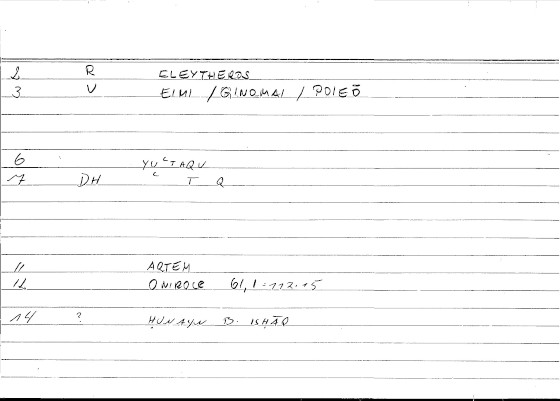 2 R ELEYTHEROS
3 V EIMI / GINOMAI / POIEŌ
6 YUʿTAQU
7 DH ʿ T Q
11 ARTEM
12 ONIROCR 61,1 = 112.15
14 ? ḤUNAYN B. ISḤĀQ